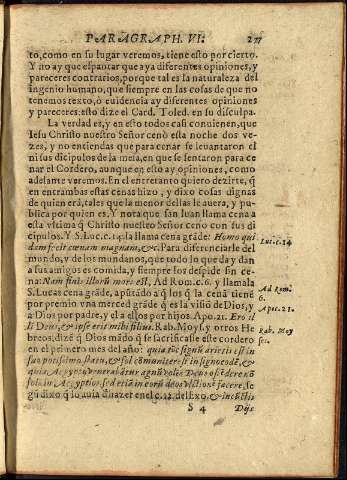 PARAGRAPH. VI.
to, como en su lugar veremos, tiene esto por cierto.
Y no ay que espantar que aya diferentes opiniones, y
pareceres contrarios, porque tal es la naturaleza del
ingenio humano, que siempre en las cosas de que no
tenemos texto, ò euidencia ay diferentes opiniones
y pareceres: esto dize el Card. Toled. en su disculpa.
La verdad es, y en esto todos casi conuienen, que
Iesu Christo nuestro Señor cenò esta noche dos ve-
zes, y no entiendas que para cenar se leuantaron el
ni sus dicipulos de la mesa, en que se sentaron para ce
nar el Cordero, aunque en esto ay opiniones, como
adelante veremos. En el entretanto quiero dezirte, q̃
en entrambas estas cenas hizo, y dixo cosas dignas
de quien era, tales que la menor dellas le auera, y pu-
blica por quien es. Y nota que san Iuan llama cena a
esta vltima q̃ Christo nuestro Señor ceno con sus di
cipulos. Y S. Luc. c. 14. la llama cena grãde: Homo qui
dam fecit cœnam magnam, &c. Para diferenciarle del
mundo, y de los mundanos, que todo lo que da y dan
a sus amigos es comida, y siempre los despide sin ce
na: Nam finis illorũ mors est. Ad Rom. c. 6. y llamala
S. Lucas cena grande, apũtado a q̃ los q̃ la cena tiene
por premio vna merced grãde q̃ es la visiõ de Dios, y
a Dios por padre, y el a ellos por hijos. Apo. 21. Ero il
li Deus, & ipse erit mihi filius. Rab. Moys. y otros He
breos; dizẽ q̃ Dios mãdò q̃ se sacrificasse este cordero
en el primero mes del año: quia tũc signũ arietis est in
suo
quia Aegypto venerabãtur agnũ
solis in Aegyptios, sed etiã in facere, se
gũ dixo q̃ lo auia de hazer en el c. 12. del Exo.
S 4 Dijs
Luc. c. 14
Ad Rom.
6.
Apoc. 21.
Rab. Moy
ses.